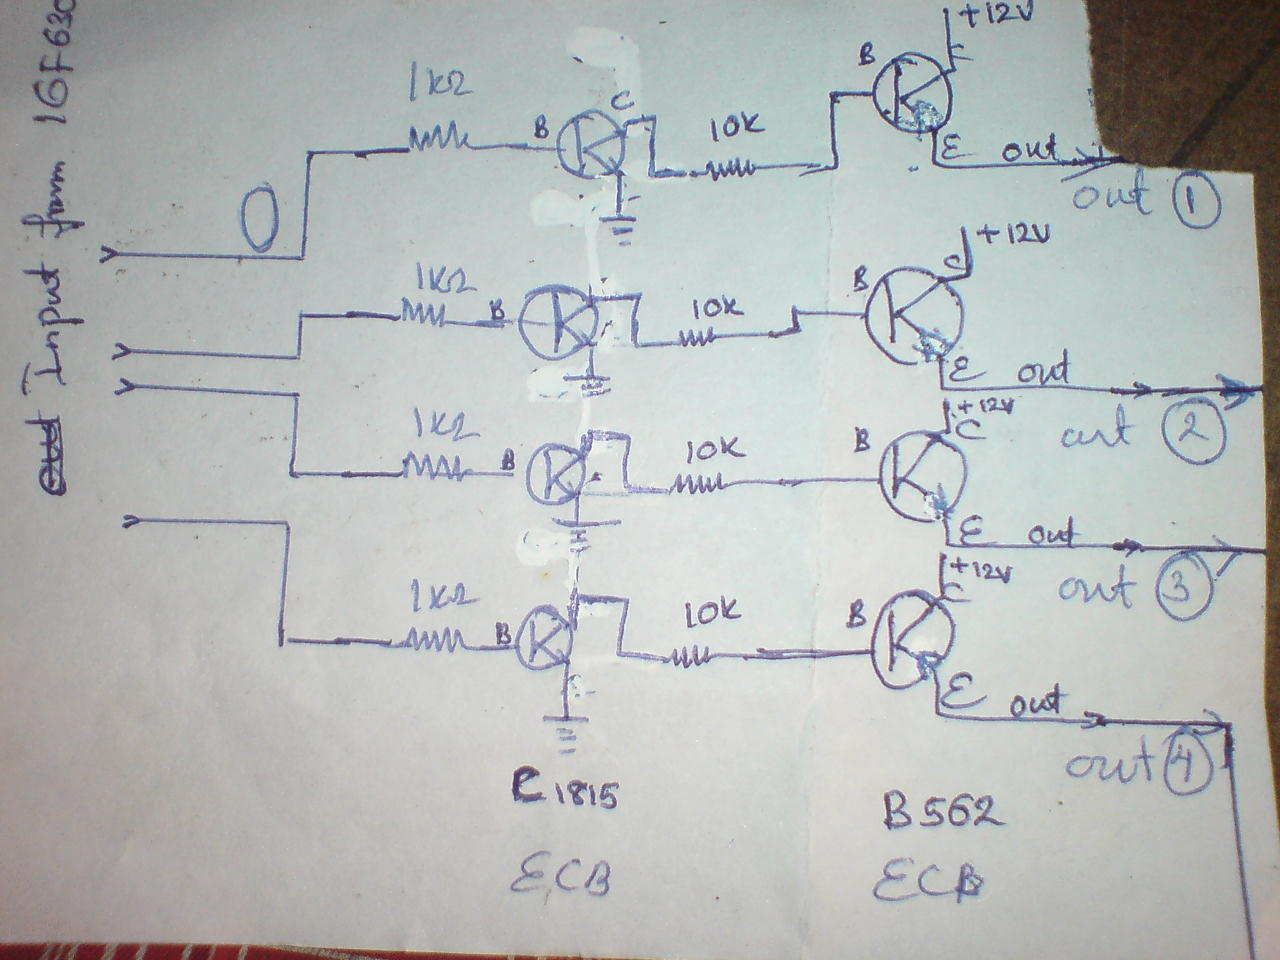 Input from 16F630
+12V
1kΩ
B
C
10K
B
C
E out
out ①
+12V
1kΩ
B
10K
B
C
E out
out ②
+12V
1kΩ
B
10K
B
C
E out
out ③
+12V
1kΩ
B
10K
B
C
E out
out ④
C1815
B562
ECB
ECB